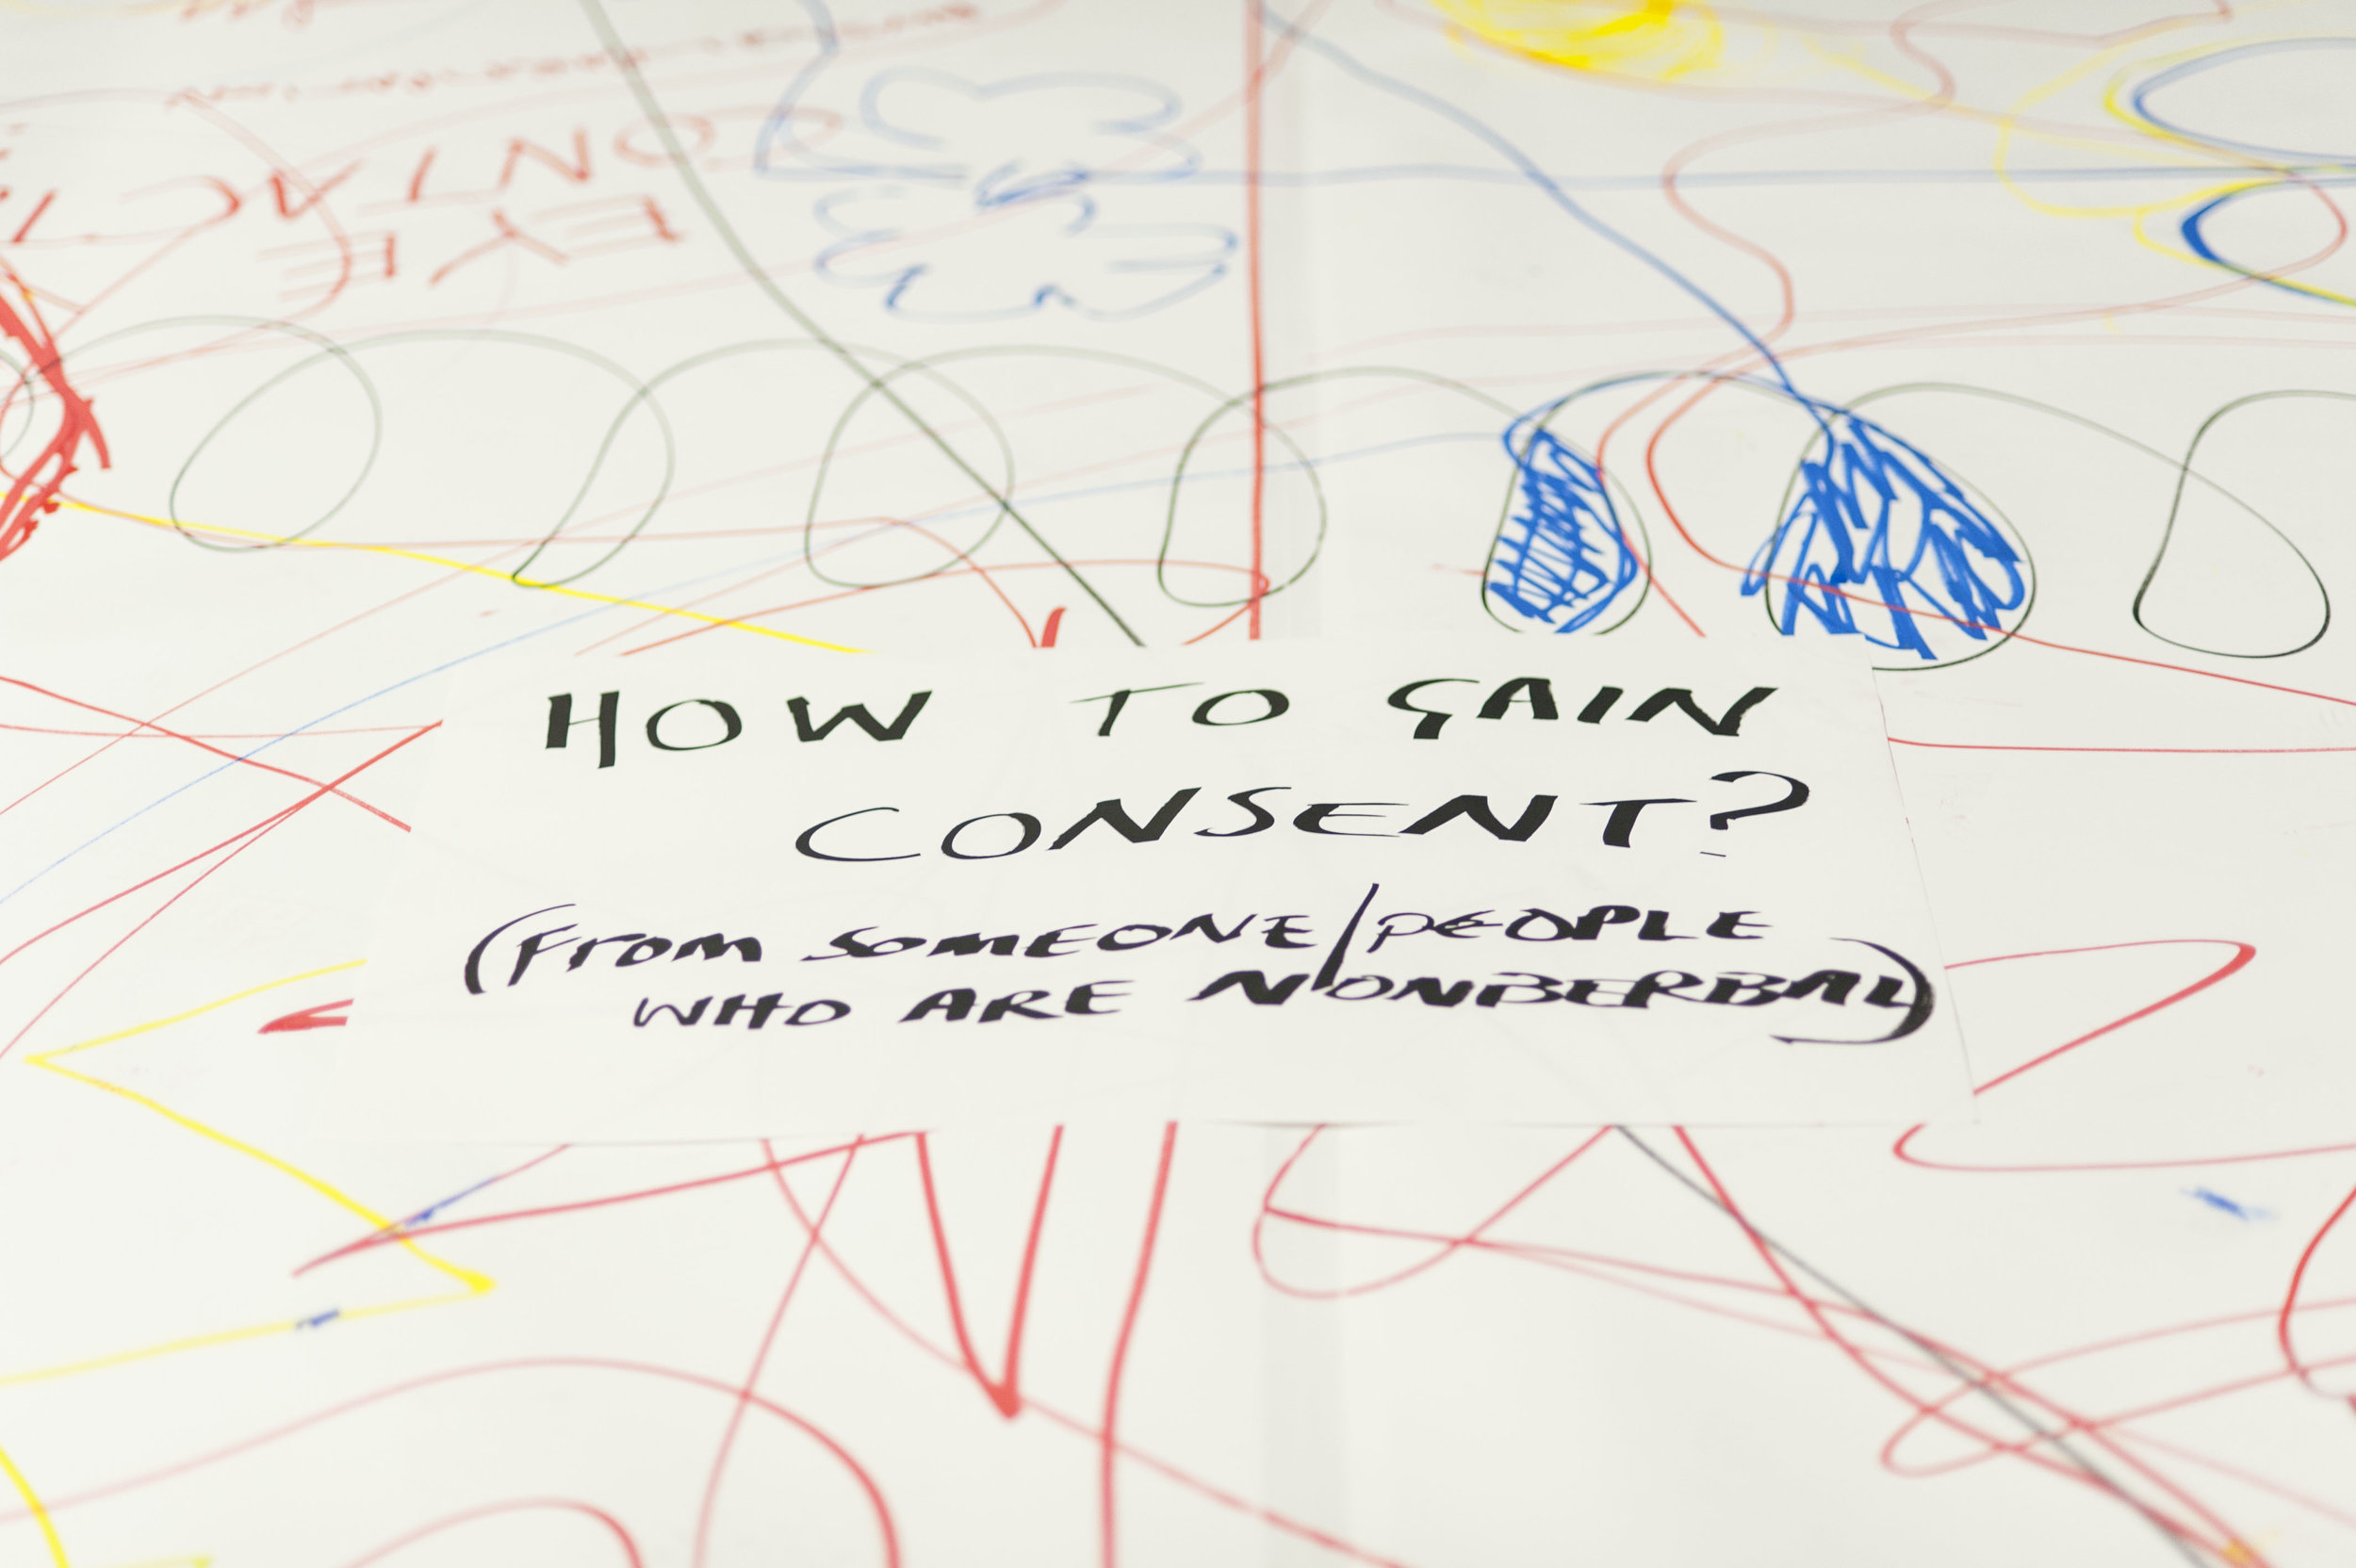 EYE
CONTACT
HOW TO GAIN
CONSENT?
(From SOMEONE/PEOPLE
WHO ARE NONBERBAL)